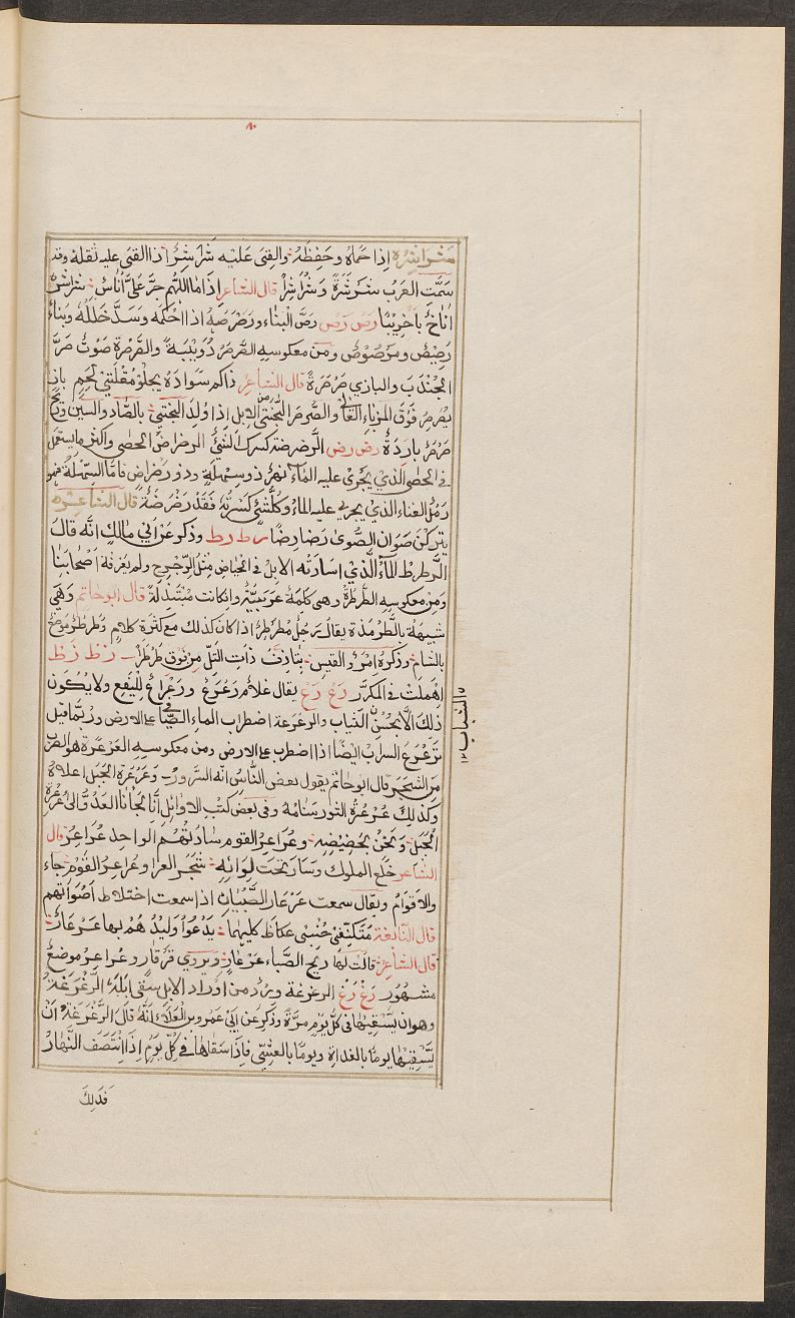 ٨٠
شراشره إذا حماه وحفظه والقى عليه شراشره اذا القى عليه ثقله وقد
سمّت العرب شرشرة وشراشرا قال الشاعر إذا ما اللهم جر على أناس شراشره
أناخ بآخرينا رص رص رص البناء ورصرصه اذا احكمه وسد خلله وبناء
رصيص ومرصوص ومن معكوسه الصرصر دويبة والصرصرة صوت صر
الجندب والبازي صرصرة قال الشاعر ذاكم سوادة يجلو مقلتي لحم باز
يصرصر فوق المرباء العالي والصرصر البختي الابل اذا ولد البختي بالصاد والسين وريح
صرصر باردة رض رض الرضرضة كسرك الشئ الرضراض الحصى واكثر ما يستعمل
في الحصى الذي يجري عليه الماء نهر ذو سهلة وذو رضراض فاما السهلة فهو
رمل القناء الذي يجري عليه الماء وكل شئ كسرته فقد رضرضته قال الشاعر
يتركن صوان الصوى رضارضا رط رط وذكر عن ابي مالك انه قال
الرطرط الماء الذي اسارته الابل في الحياض مثل الرجرج ولم يعرفه اصحابنا
ومن معكوسه الطرطرة وهي كلمة عربية وانكانت مبتذلة قال ابو حاتم وهي
شبيهة بالطرمذة يقال رجل مطرطر اذا كان كذلك مع كثرة كلام وطرطر موضع
بالشام وذكره امرؤ القيس بتاذف ذات التل من فوق طرطرا رظ رظ
اهملت في المكرر رع رع يقال غلام رعرع ورعراع لليفع ولا يكون
ذلك الا بحسن الشباب والرعرعة اضطراب الماء الصافي على الارض وربما قيل
ترعرع السراب ايضا اذا اضطرب على الارض ومن معكوسه العرعرة هو الضرب
من الشجر قال ابو حاتم يقول بعض الناس انه السرو وعرعرة الجبل اعلاه
وكذلك عرعرة الثور سنامه وفي بعض كتب الاوائل انا لجانا العدو الى عرعرة
الجبل ونحن بحضيضه وعراعر القوم ساداتهم الواحد عراعر قال
الشاعر خلع الملوك وسار تحت لوائه شجر العرا وعراعر القوم جاء
والاقوام ويقال سمعت عرعار الصبيان اذا سمعت اختلاط اصواتهم
قال النابغة متكنفي جنبي عكاظ كليهما يدعوا وليدهم بها عرعار
قال الشاعر قالت لها ريح الصباء عرعار ويروي قرقار وعراعر موضع
مشهور رغ رغ الرغرغة ورد من اوراد الابل سقى ابله الرغرغة
وهو ان يسقيها في كل يوم مرة وذكر عن ابي عمرو بن العلاء انه قال الرغرغة ان
يسقيها يوما بالغداة ويوما بالعشي فاذا سقاها في كل يوم اذا انتصف النهار
فذلك
الشباب